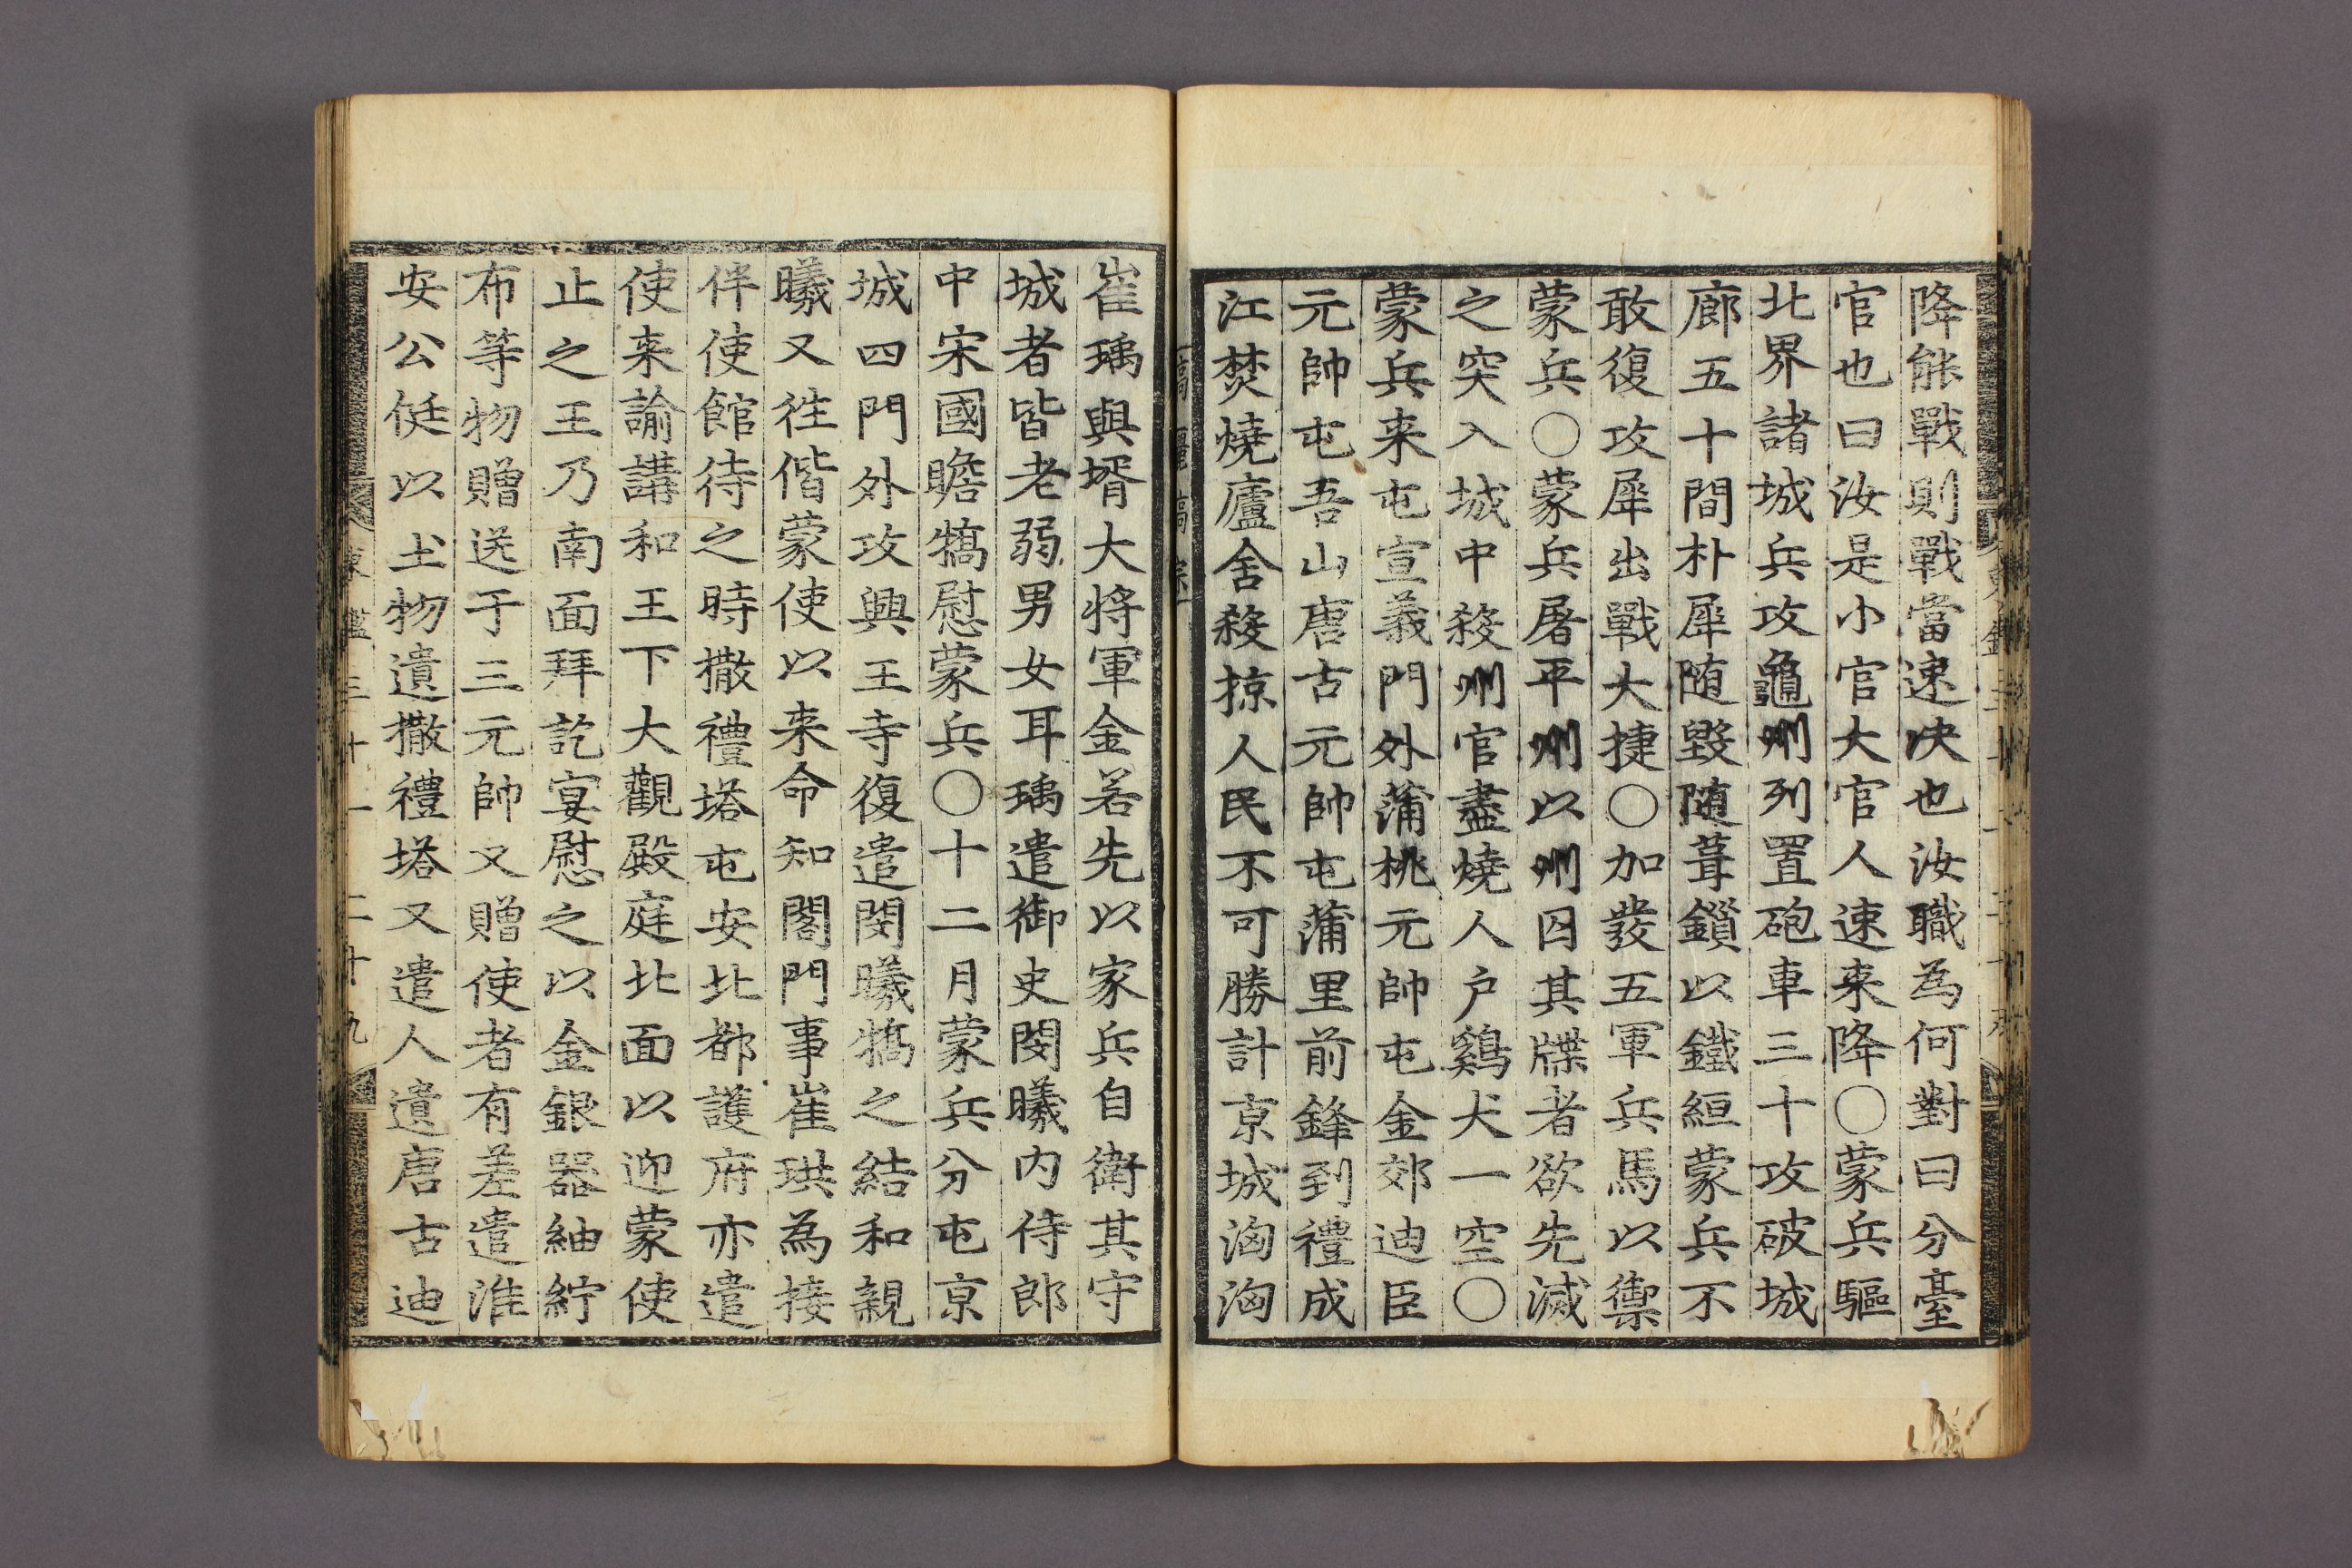 降能戰則戰當速决也汝職為何對曰分臺
官也曰汝是小官大官人速来降○蒙兵驅
北界諸城兵攻龜州列置砲車三十攻破城
廊五十間朴犀随毀随葺鎖以鐵絙蒙兵不
敢復攻犀出戰大捷○加發五軍兵馬以禦
蒙兵○蒙兵屠平州以州囚其牒者欲先滅
之突入城中殺州官盡燒人户鷄犬一空○
蒙兵来屯宣義門外蒲桃元帥屯金郊迪臣
元帥屯吾山唐古元帥屯蒲里前鋒到禮成
江焚燒廬舍殺掠人民不可勝計京城洶洶
崔瑀與壻大將軍金若先以家兵自衛其守
城者皆老弱男女耳瑀遣御史閔曦内侍郎
中宋國瞻犒慰蒙兵○十二月蒙兵分屯京
城四門外攻興王寺復遣閔曦犒之結和親
曦又徃偕蒙使以来命知閤門事崔珙為接
伴使館待之時撒禮塔屯安北都護府亦遣
使来諭講和王下大觀殿庭北面以迎蒙使
止之王乃南面拜訖宴慰之以金銀器紬紵
布等物贈送于三元帥又贈使者有差遣淮
安公侹以土物遺撒禮塔又遣人遺唐古迪
東鑑三十一 二十九